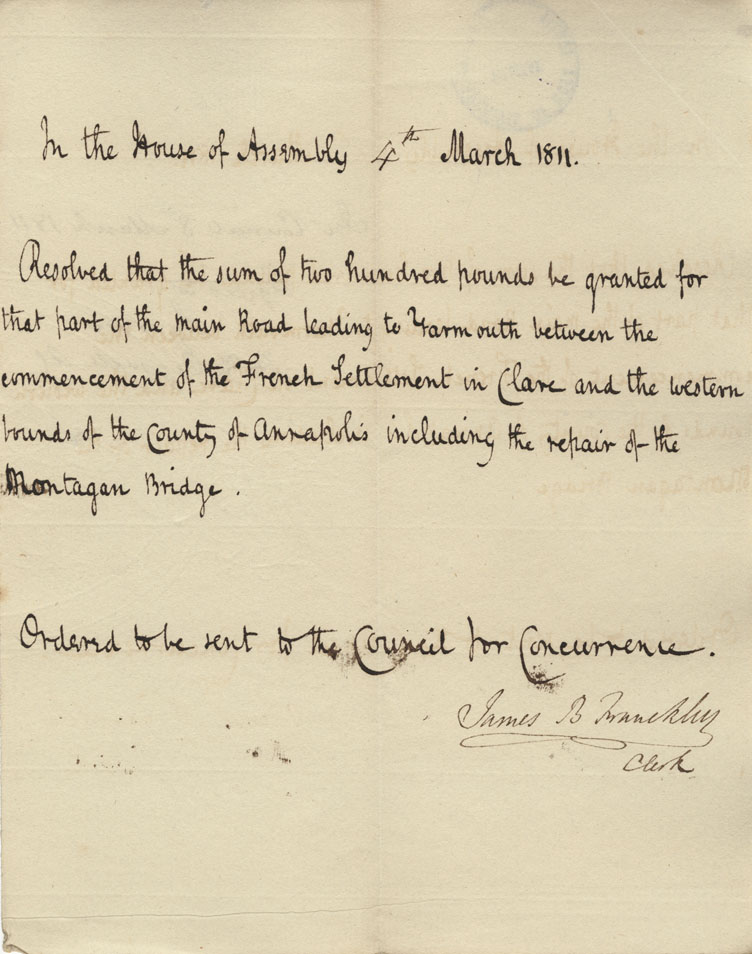 In the House of Assembly 4th March 1811.
Resolved that the sum of two hundred pounds be granted for
that part of the main Road leading to Yarmouth between the
commencement of the French Settlement in Clare and the western
bounds of the County of Annapolis including the repair of the
Montagan Bridge.
Ordered to be sent to the Council for Concurrence.
James B Franckly
Clerk